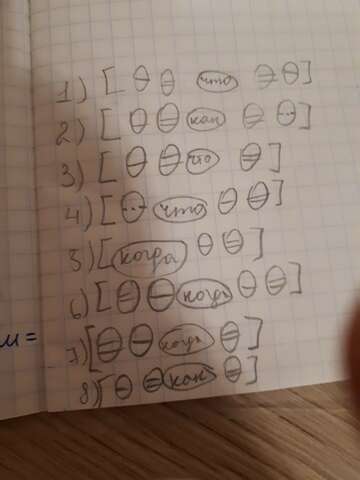 1) [ что ]
2) [ как ]
3) [ ]
4) [ что ]
5) [ когда ]
6) [ когда ]
7) [ когда ]
м =
8) [ как ]